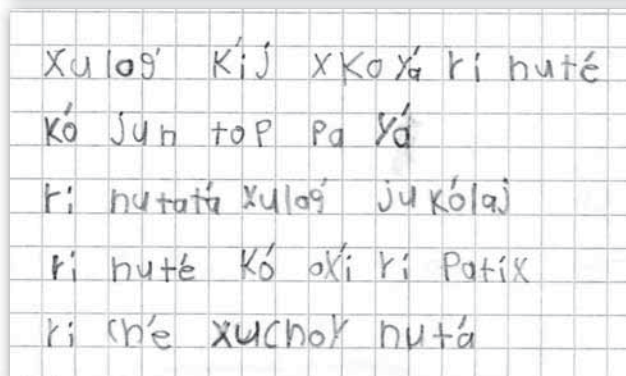 Xuloq' k'ij xkoyá ri nuté
kó jun top pa yá
ri nutatá xuloq' jukólaj
ri nuté kó oxi ri patíx
ri ch'e xuchoy nutá